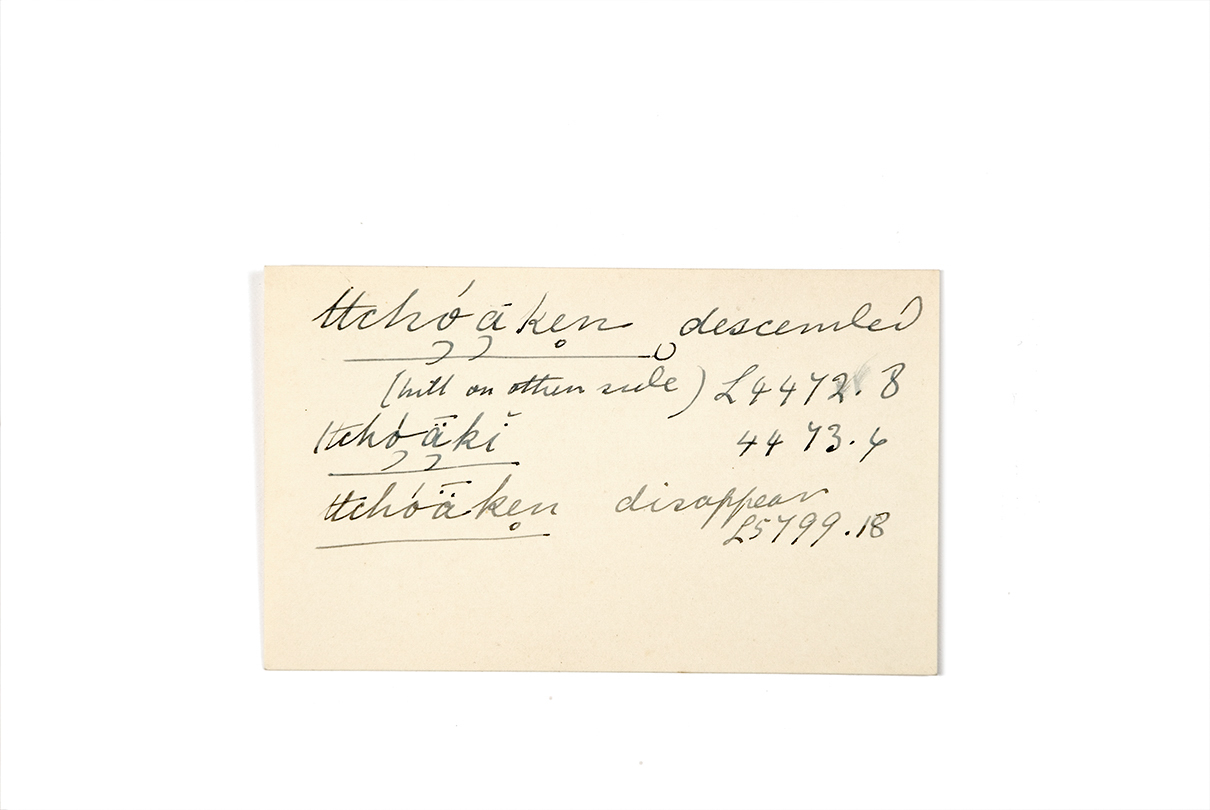 ttchóäkẹn descended
(hill on other side) L4472.8
ttchóäkĭ 4473.4
ttchóäkẹn disappear
L5799.18